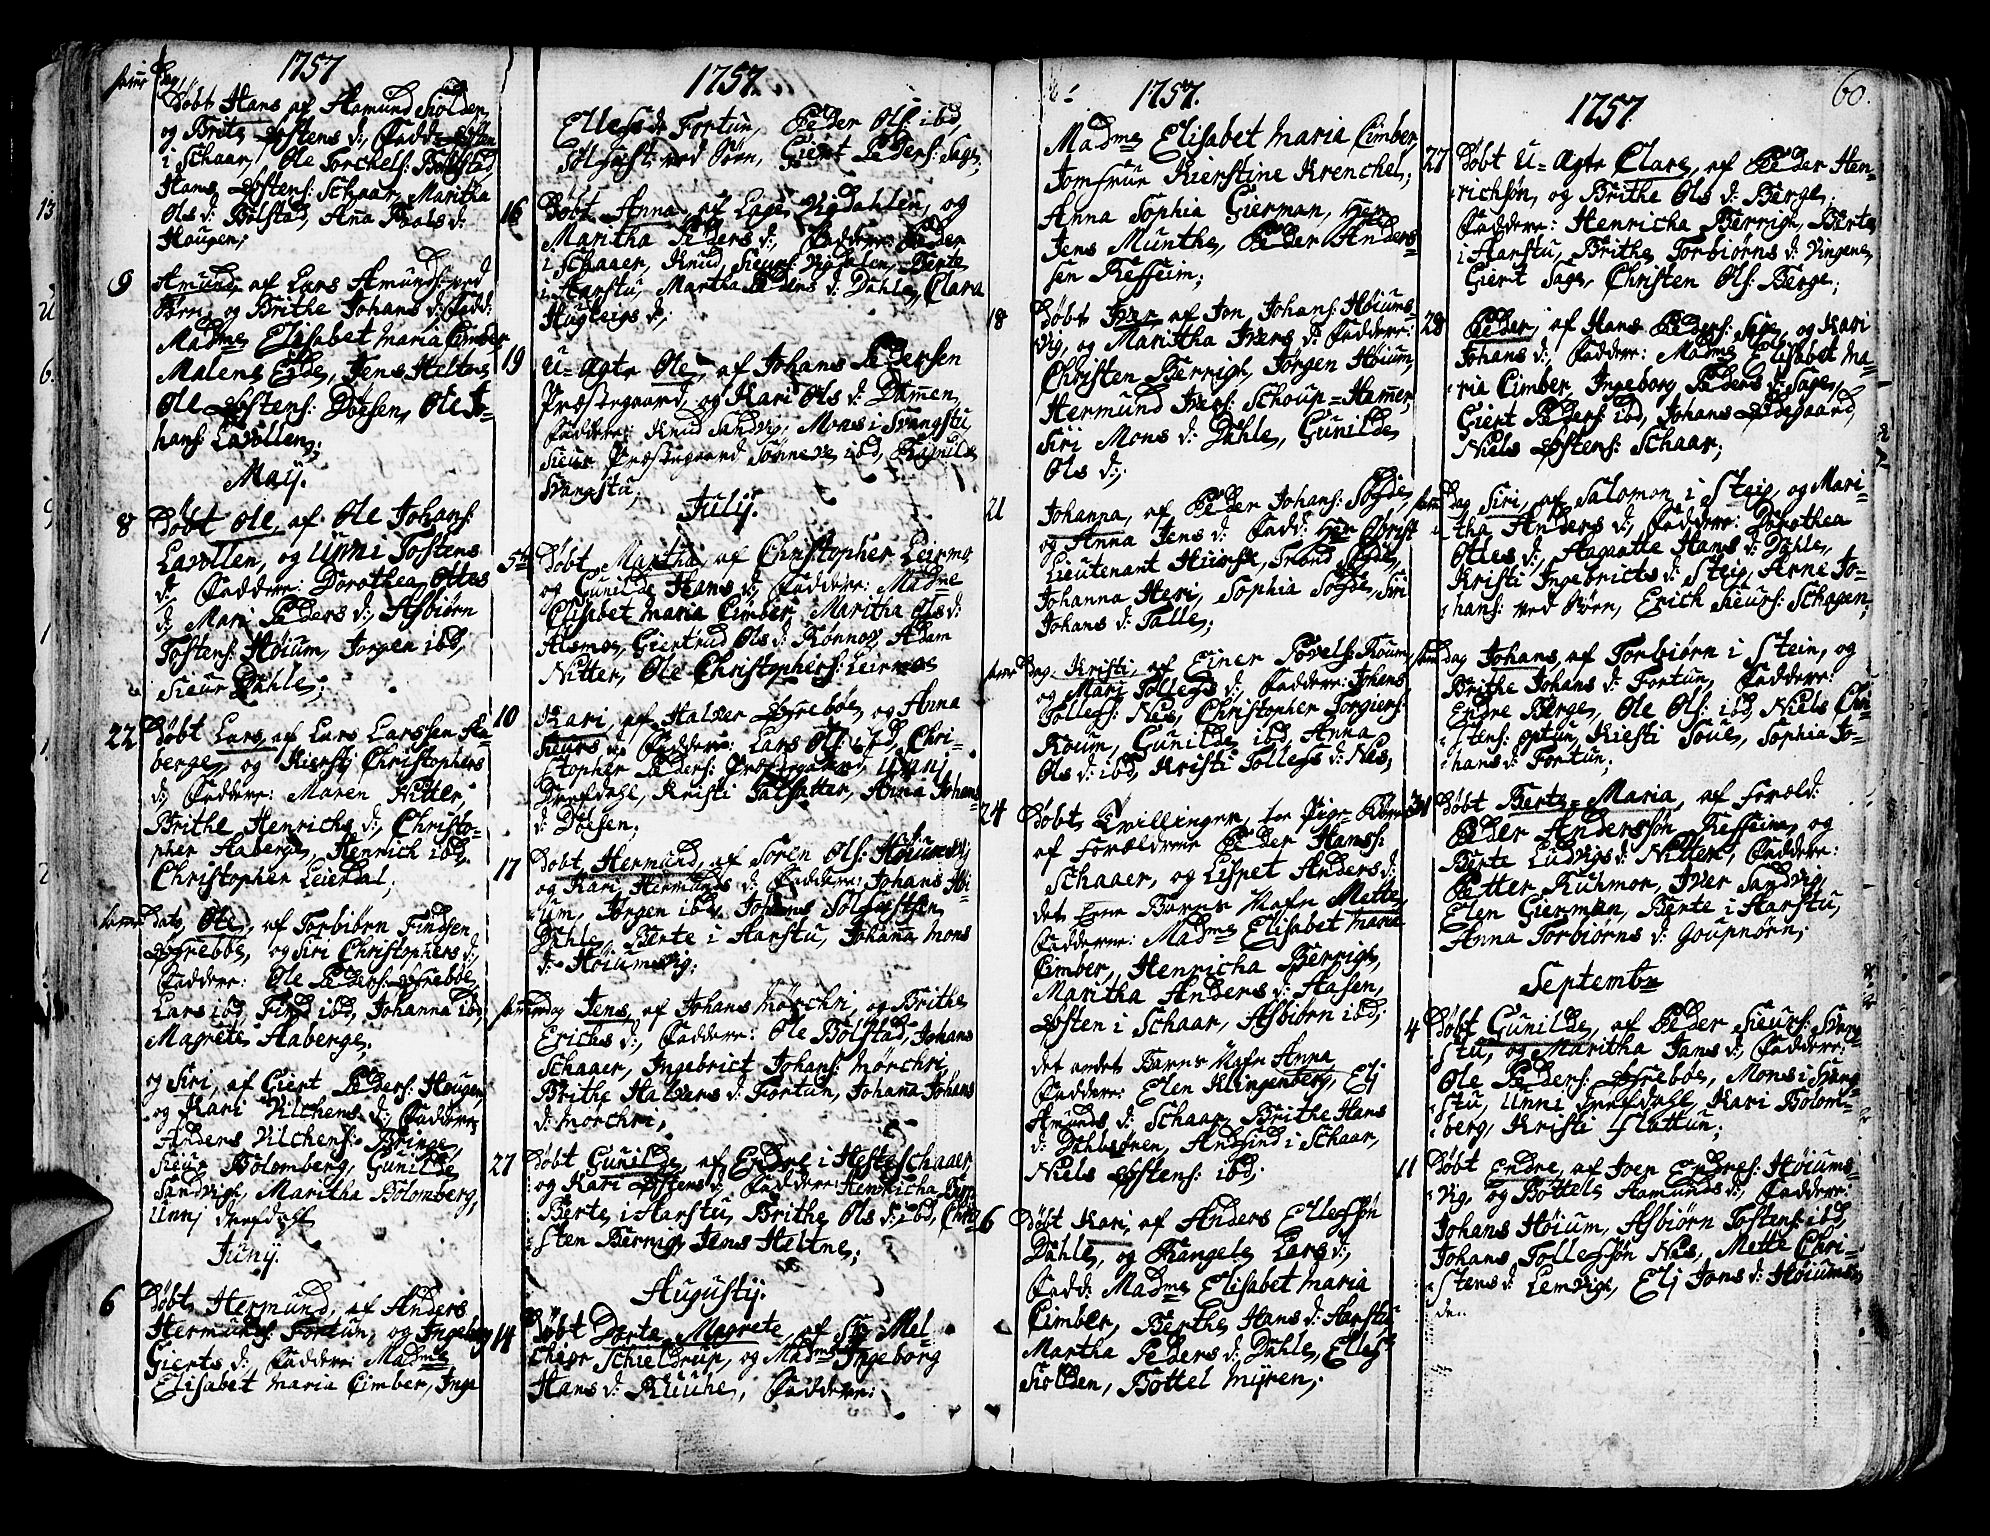 1757
samme Dag
Døbt Hans af Hamund Siolden,
og Brite Østens d: Fadd: Østen
i Schaar, Ole Torchels: Bolstad,
Hans Østens: Schaar, Maritha
Ols d: Bolstad, Aña Povls d:
Hougen;
9 Amund, af Lars Amunds: ved
Søen, og Brithe Johans d: Fadd:
Madme Elisabet Maria Cimber
Malene Eide, Jens Heltne
Ole Østens: Døesen, Ole Jo-
hans: Lavollen;
Maij.
8 Døbt Ole, af Ole Johans:
Lavollen, og Unni Tostens
d: Faddere: Dorothea Ottes
d: Mari Peders d:, Asbiørn
Tostens: Høium, Jørgen ibd,
Sieur Dahle;
22 Døbt Lars, af Lars Larssen Aa-
berge, og Kiersti Christophers
d: Faddere: Maren Nitter,
Brithe Henrichs d:, Christo-
pher Aaberge, Henrich ibd,
Christopher Leirdal;
samme Dato, Ole, af Torbiørn Findsen
Øfrebøe, og Siri Christophers d:,
Faddere: Ole Peders: Øfrebøe,
Lars ibd, Find ibd, Johanna ibd,
Magrete Aaberge;
og Siri, af Giert Peders: Hougen,
og Kari Vilchens d: Faddere
Anders Vilchens: Bringe,
Sieur Bolomberg, Gunilde
Sandvig, Maritha Bolomberg,
Unnj Drefdahl
Junij.
6 Døbt Hermund, af Anders
Hermunds: Fortun, og Ingeborg
Gierts d: Faddere: Madme
Elisabet Maria Cimber, Inge
1757.
Elles d: Fortun, Peder Ols: ibd,
Solgiest: ved Søen, Giert Peders: Sage,
16 Døbt Anna, af Lage Vigdahlen, og
Maritha Peders d: Faddere: Peder
i Schaaer, Knud Sieurs: Vigdalen, Berte
i Aarstu, Martha Peders d: Dahle, Clara
Hugleigs d:
19 U-Ægte Ole, af Johans Pedersen
Præstegaard, og Kari Ols d: Dam̃en
Faddere: Knud Sandvig, Mons i Svangstu,
Sieur Præstegaard, Sønneve ibd, Ragnilde
Svangstu,
Julij.
5te Døbt Martha, af Christopher Leirmo
og Gunilde Hans d:, Faddere: Madme
Elisabet Maria Cimber, Maritha Ols d:
Alsmoe, Giertrud Ols d: Rønnow, Adam
Nitter, Ole Christophers: Leirmoe
10 Kari, af Halvar Øfrebøe, og Anna
Sieurs d: Faddere: Lars Ols: ibd, Chri-
stopher Peders: Præstegaard, Unnj
Drefdahl, Kristi Talsatter, Anna Johans
d: Døesen;
17 Døbt Hermund, af Søren Ols: Høiumsvig
og Kari Hermunds d: Faddere: Johans Hø-
ium, Jørgen ibd, Johans Solgiestsen
Dahle, Berte i Aarstu, Johaña Mons
d: Høiumsvig;
samme Dag Jens, af Johans Mørchri, og Brithe
Erichs d:, Faddere: Ole Bolstad, Johans
Schaaer, Ingebrict Johans: Mørchri,
Brithe Halvars d: Fortun, Johaña Johans
d: Mørchri,
27 Døbt Gunilde, af Endre i Hesteschaaer
og Kari Østens d: Faddere: Henricha Berrig
Berte i Aarstu, Brithe Ols d: ibd, Chri-
sten Berrig, Jens Heltne;
Augustij.
14 Døbt Dorte Magrete, af Sr. Mel-
chior Schieldrup, og Madme Ingeborg
Hans d: Kuuhe, Faddere:
1757.
Madme Elisabet Maria Cimber
Jomfrue Kierstine Krenchel;
Anna Sophia Gierman, Her
Jens Munthe, Peder Anders-
sen Keffeim;
18 Døbt Iver af Jon Johans: Høiums-
vig, og Maritha Ivers d: Faddere:
Christen Berrigh, Jørgen Høium,
Hermund Ivers: Schoup-Ham̃er,
Siri Mons d: Dahle, Gunilde
Ols d:;
21 Johanna, af Peder Johans: Sogde,
og Anna Jens d: Fadd: Her Obrist
Lieutenant Huus, Trond Sogde,
Johanna Heri, Sophia Sogde, Siri
Johans d: Talle;
samme Dag Kristi, af Einer Povels: Koum,
og Mari Tollegs d:, Faddere: Johans
Tollegs: Næs, Christopher Torgiers:
Koum, Gunilde ibd, Anna
Ols d: ibd, Kristi Tollegs d: Næs;
24 Døbt Tvillinger, toe Pige-Børn
af Forældrene Peder Hanss:
Schaaer, og Lispet Anders d:
det Eene Barns Nafn Mette,
Faddere: Madme Elisabet Maria
Cimber, Henricha Berrigh,
Maritha Anders d: Aasen,
Østen i Schaar, Asbiørn ibd;
det andet Barns Nafn Anna
Faddere: Elen Klingenberg, Elj
Amunds d: Schaar, Brithe Hans
d: Dahlesøren, Andfind i Schaar,
Niels Østens: ibd;
6 Døbt Kari, af Anders Ellessøn
Dahle, og Rangele Lars d:,
Fadd: Madme Elisabet Maria
Cimber, Berthe Hans d: Aarstu
Martha Peders d: Dahle, Elles
Siolden, Bottel Myren;
60.
1757
27 Døbt U-Ægte Clare, af Peder Hen-
richsøn, og Brithe Ols d: Berge;
Faddere: Henricha Berrigh, Berte
i Aarstu, Brithe Torbiørns d: Vingene,
Giert Sage, Christen Ols: Berge;
28 Peder, af Hans Peders: Sage, og Kari
Johans d:, Faddere: Madme Elisabet Ma-
ria Cimber, Ingeborg Peders d: Sage,
Giert Peders: ibd, Johans Ødegaard,
Niels Østens: Schaar;
samme Dag Siri, af Salomon i Steig, og Mari-
tha Anders d:, Faddere: Dorothea
Ottes d:, Aagatte Hans d: Dahle,
Kristi Ingebricts d: Steig, Arne Jo-
hans: ved Søen, Erich Sieurs: Schagen;
samme dag Johans, af Torbiørn i Stein, og
Brithe Johans d: Fortun, Faddere:
Endre Berge, Ole Ols: ibd, Niels Chri-
stens: Optun, Kiesti Soue, Sophia Jo-
hans d: Fortun;
31 Døbt Berte-Maria, af Foræld:
Peder Anderssøn Keffeim, og
Berte Ludvigs d: Nitter, Faddere:
Petter Ruhmor, Iver Sandvig,
Elen Gierman, Berte i Aarstu,
Anna Torbiørns d: Joupnørn;
September
4 Døbt Gunilde, af Peder Sieurs: Svang-
stu, og Maritha Jans d:, Faddere:
Ole Peders: Øfrebøe, Mons i Svang-
stu, Unni Drefdahl, Kari Bolom-
berg, Kristi Flattun;
11 Døbt Endre, af Joen Endres: Høiums-
vig, og Bottels Aamunds d:, Faddere:
Johans Høium, Asbiørn Tostens: ibd,
Johans Tollegssøn Næs, Mette Chri-
stens d: Lemvigh, Elj Jons d: Høiums-
den.